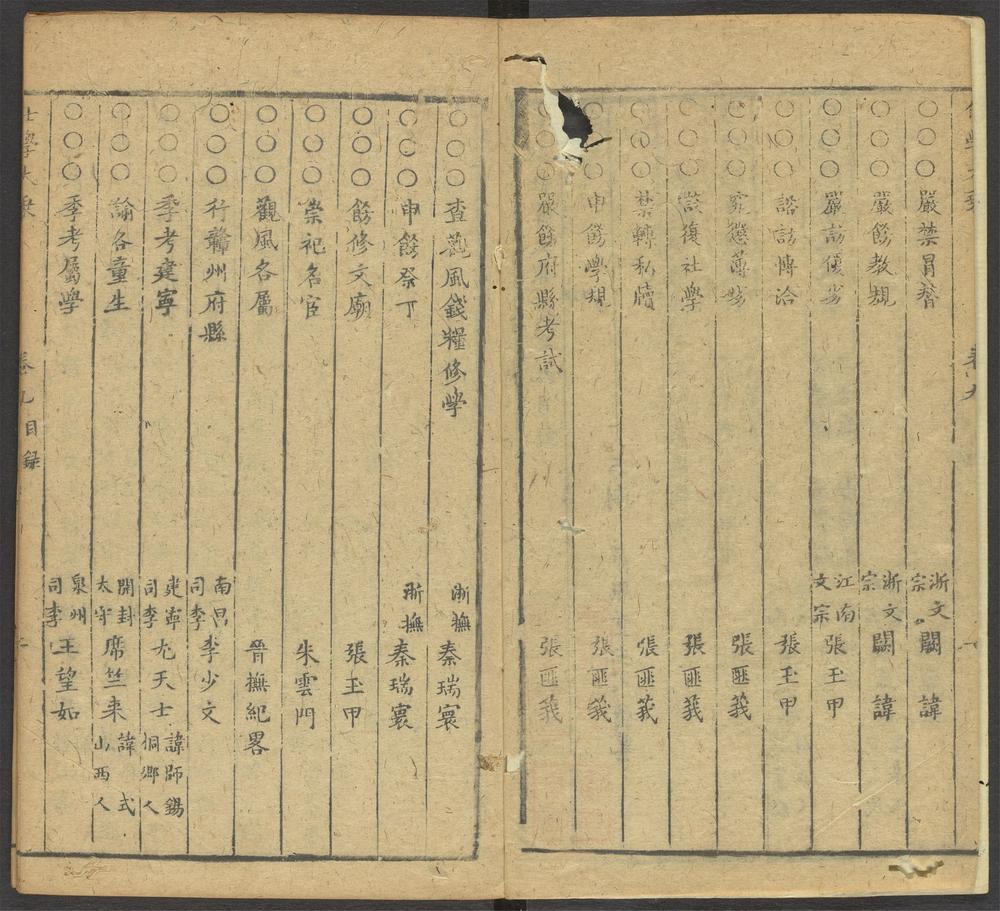 ○○○嚴禁冒替 浙文宗 闕諱
○○○嚴飭教規 浙文宗 闕諱
○○○嚴訪優劣 江南文宗 張玉甲
○○○諮訪博洽 張玉甲
○○○究懲薄劣 張匪莪
○○○設復社學 張匪莪
○○○禁轉私牘 張匪莪
○○申飭學規 張匪莪
○○○嚴飭府縣考試 張匪莪
○○○查觀風錢糧修學 浙撫 秦瑞寰
○○○申飭祭丁 浙撫 秦瑞寰
○○○飭修文廟 張玉甲
○○○崇祀名宦 朱雲門
○○○觀風各屬 晉撫紀畧
○○○行贛州府縣 南昌司李 李少文
○○○季考建寧 建寧司李 尤天士 諱師錫 桐鄉人
○○○諭各童生 開封太守 席竺來 諱式 山西人
○○○季考屬學 泉州司李 王望如
仕學大乘 卷九目録